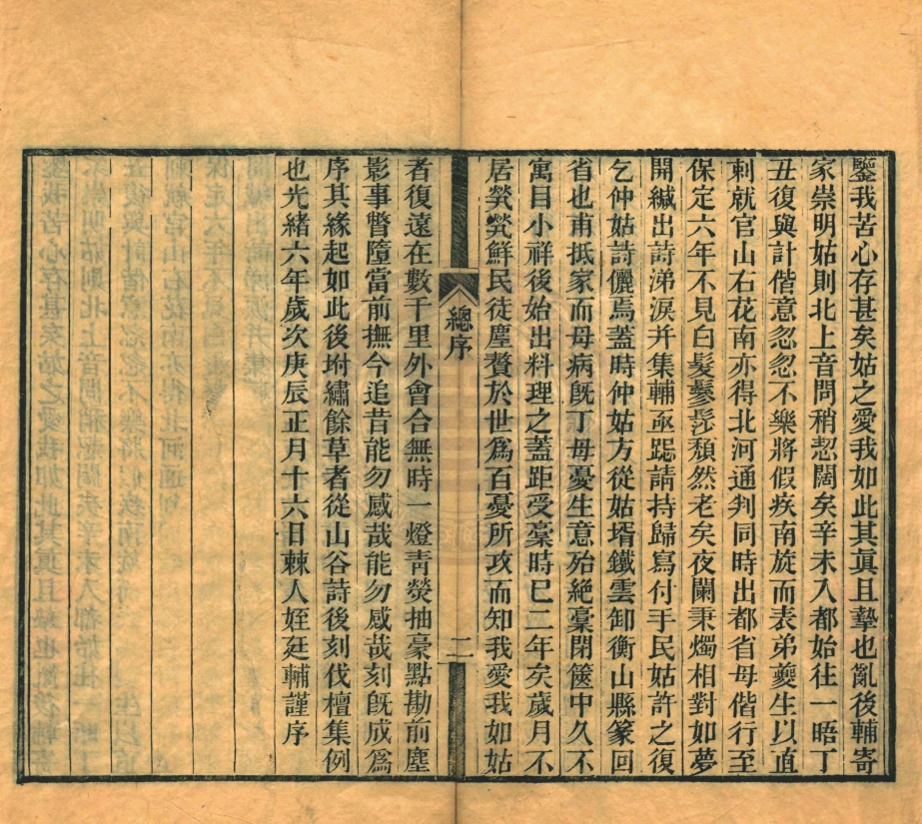 鑒我苦心存甚矣姑之愛我如此其眞且摯也亂後輔寄
家崇明姑則北上音問稍恝闊矣辛未入都始往一晤丁
丑復與計偕意忽忽不樂將假疾南旋而表弟夔生以直
刺就官山右花南亦得北河通判同時出都省母偕行至
保定六年不見白髮鬖髿頹然老矣夜闌秉燭相對如夢
開緘出詩涕淚并集輔亟跽請持歸寫付手民姑許之復
乞仲姑詩儷焉蓋時仲姑方從姑壻鐵雲卸衡山縣篆回
省也甫抵家而母病旣丁母憂生意殆絶稾閉篋中久不
寓目小祥後始出料理之蓋距受稾時已二年矣歲月不
居煢煢鮮民徒塵贅於世爲百憂所攻而知我愛我如姑
總序
二
者復遠在數千里外會合無時一燈靑熒抽豪點勘前塵
影事瞥墮當前撫今追昔能勿感哉能勿感哉刻旣成爲
序其緣起如此後坿繡餘草者從山谷詩後刻伐檀集例
也光緒六年歲次庚辰正月十六日棘人姪廷輔謹序